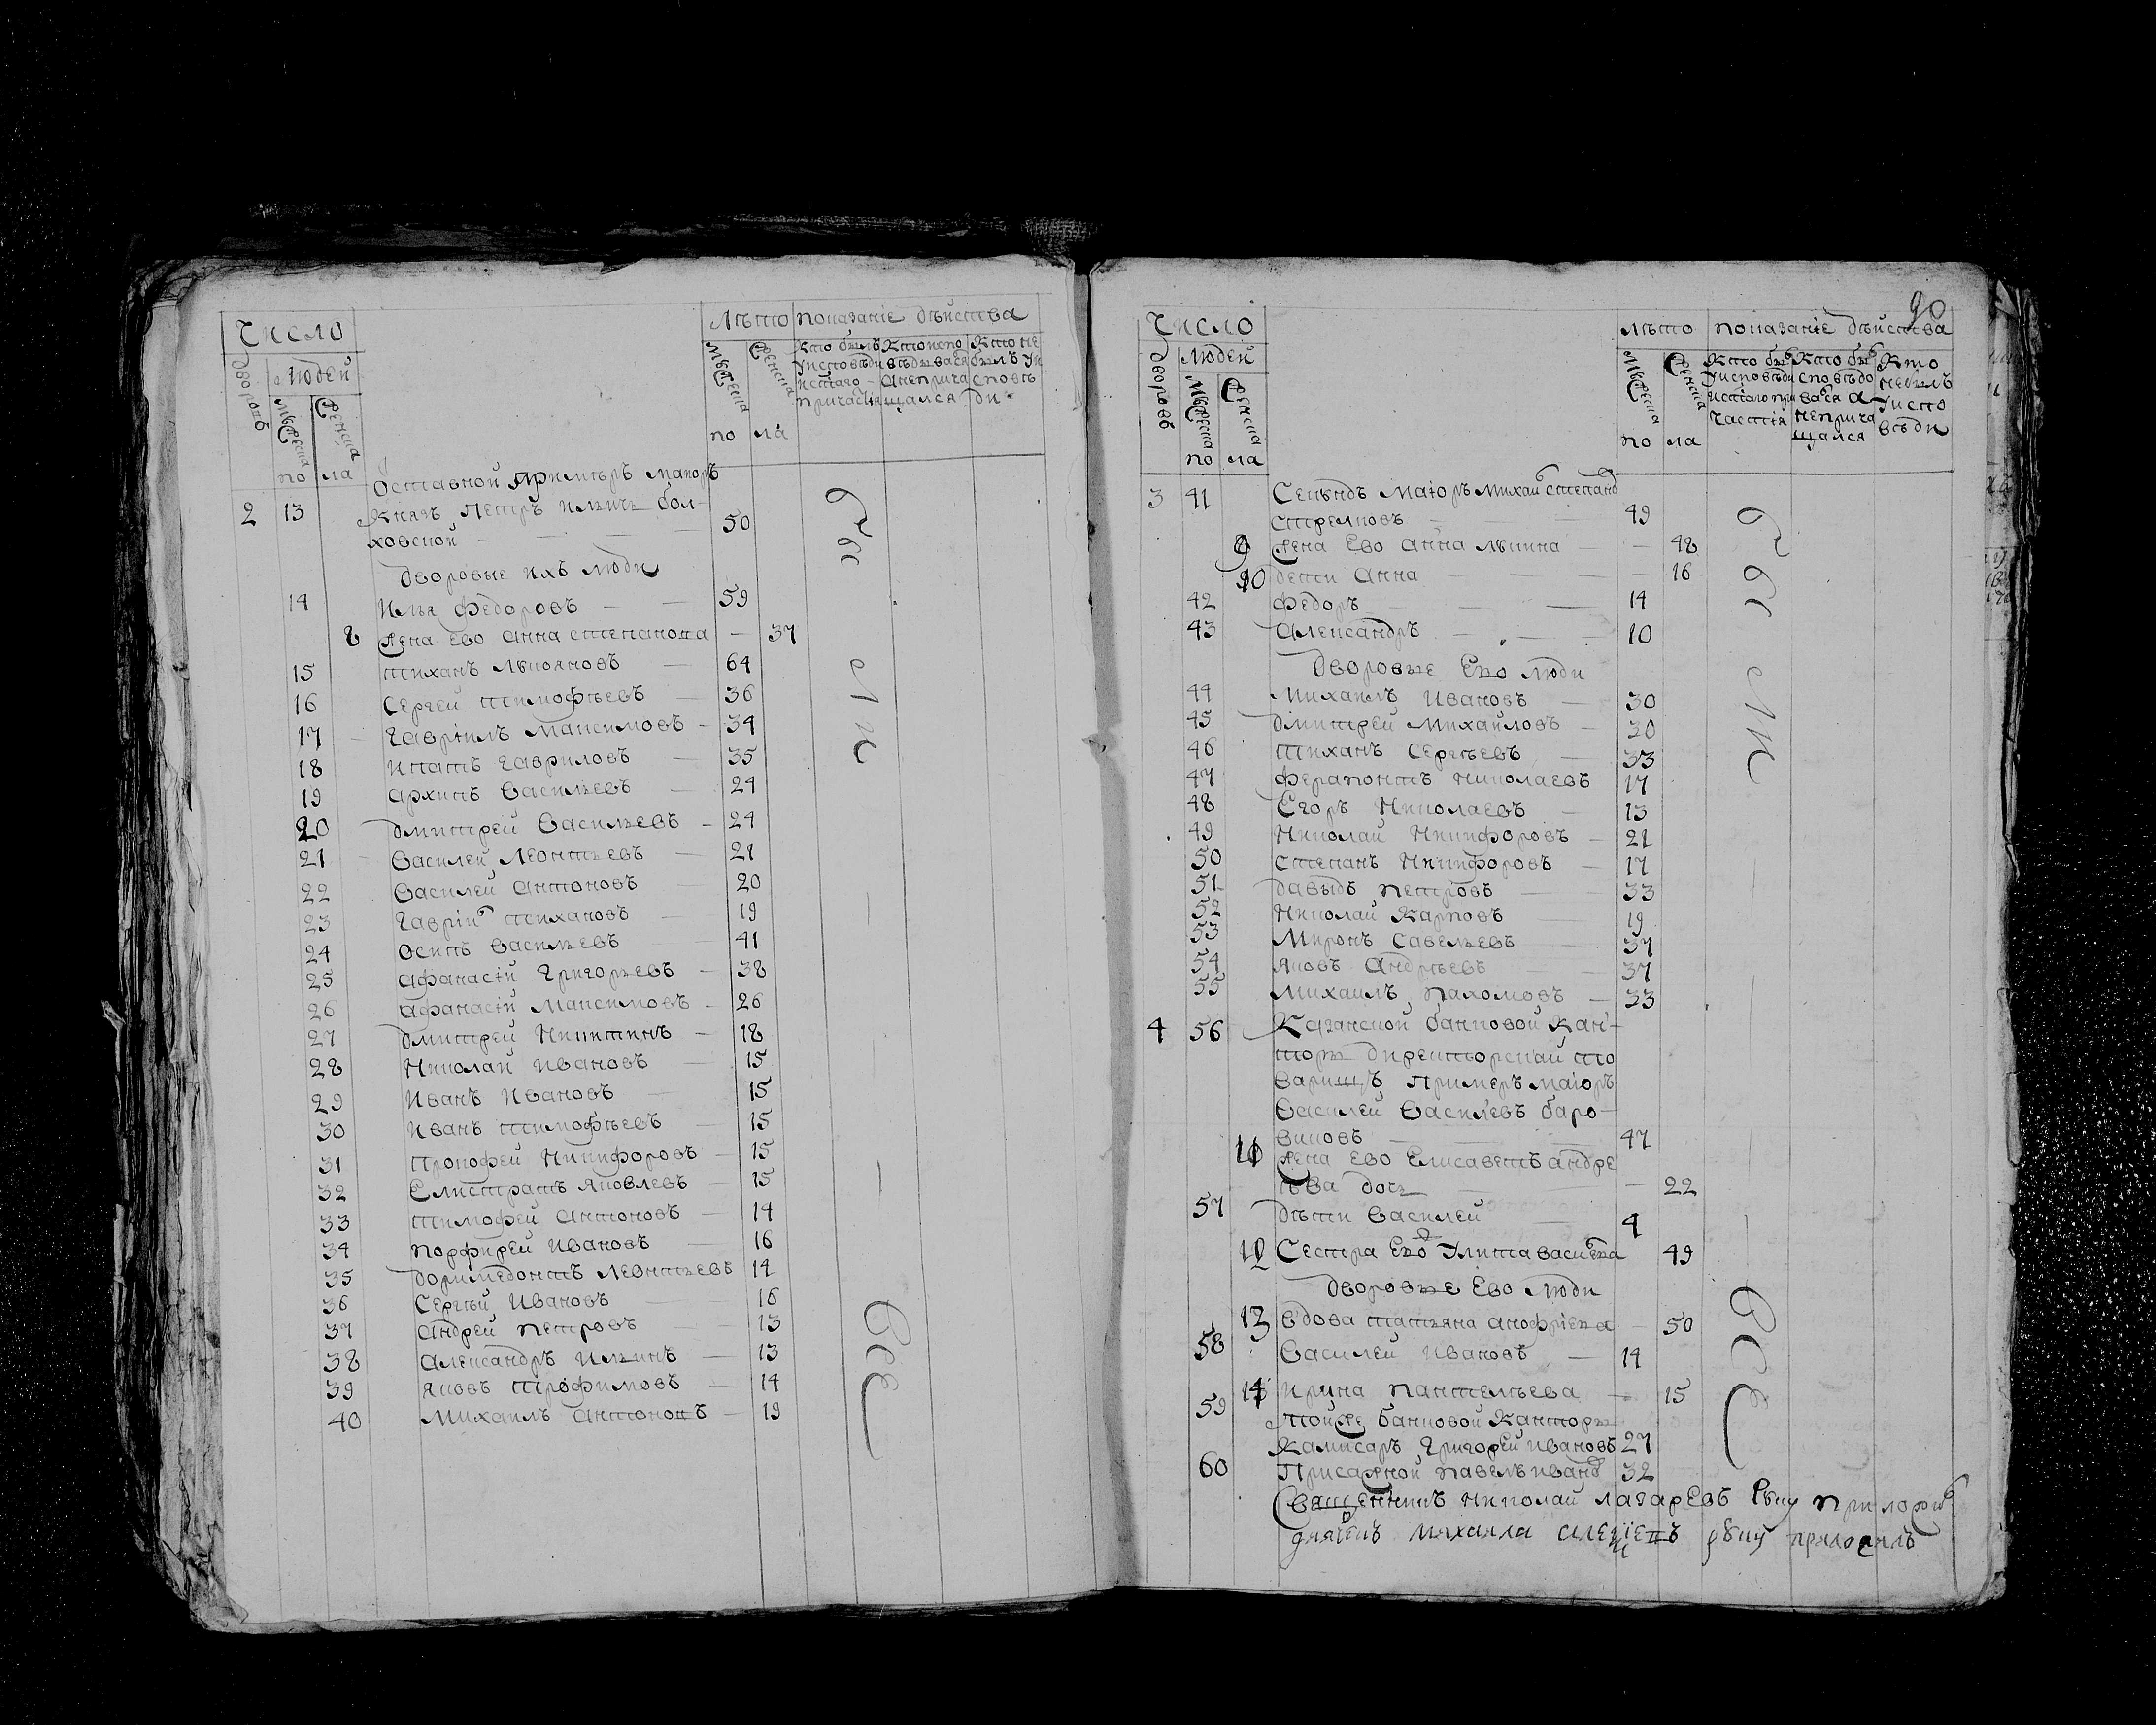 Число
Людей
Дворовъ
Мужеска
Женска
по ла
Лѣто
Показанiе дѣйства
Мужеска
Женска
по ла
Кто былъ у исповѣди и с̃таго причастiя
Кто испо вѣдывался а не прича щался
Кто не былъ у и сповѣ ди
Отставной Примиэръ маиоръ
2 13 Князь Петръ Ильичь Бол- 50
ховской
Дворовые ихъ люди
14 Илья Федоровъ — 59
8 Жена ево Анна Степанова — 37
15 Тиханъ Лукояновъ — 64
16 Сергей Тимофѣевъ — 36
17 Гаврiилъ Максимовъ — 34
18 Ипатъ Гавриловъ — 35
19 Архипъ Васильевъ — 24
20 Дмитрей Васильевъ — 24
21 Василей Леонтьевъ — 21
22 Василей Антоновъ — 20
23 Гаврiилъ Тихановъ — 19
24 Осипъ Васильевъ — 41
25 Афанасiй Григорьевъ — 38
26 Афанасiй Максимовъ — 26
27 Дмитрей Никитинъ — 18
28 Николай Ивановъ — 15
29 Иванъ Ивановъ — 15
30 Иванъ Тимофѣевъ — 15
31 Прокофей Никифоровъ — 15
32 Елистратъ Яковлевъ — 15
33 Тимофей Антоновъ — 14
34 Порфирей Ивановъ — 16
35 Доримедонтъ Леонтьевъ 14
36 Сергѣй Ивановъ — 16
37 Андрей Петровъ — 13
38 Александръ Ильинъ — 13
39 Яковъ Трофимовъ — 14
40 Михаилъ Антоновъ — 19
Были
Всѣ
90
Число
Людей
Дворовъ
Мужеска
Женска
по ла
Лѣто
Показанiе дѣйства
Мужеска
Женска
по ла
Кто былъ у исповѣди и с̃таго при частiя
Кто былъ споведо вался а не прича щался
Кто не былъ у испо вѣди
3 41 Секундъ маiоръ Михайл Степанов
Стрелковъ — 49
9 Жена ево Анна Лукина — 48
10 Дети Анна — 16
42 Федоръ — 14
43 Александръ — 10
Дворовые Ево люди
44 Михаилъ Ивановъ — 30
45 Дмитрей Михайловъ — 20
46 Тиханъ Сергѣевъ — 33
47 Ферапонтъ Николаевъ 17
48 Егоръ Николаевъ — 13
49 Николай Никифоровъ — 21
50 Степанъ Никифоровъ — 17
51 Давыдъ Петровъ — 33
52 Николай Карповъ — 19
53 Миронъ Савельевъ — 37
54 Яковъ Андрѣевъ — 37
55 Михаилъ Пахомовъ — 33
4 56 Казанской банковой кан-
торы директорскай то
варищъ Примеръ маiоръ
Василей Василевъ Баро-
виковъ — 47
11 Жена ево Елисаветъ Андре
ѣва дочь — 22
57 Дѣти Василей — 4
12 Сестра Ево Улита Васильева 49
Дворовые Ево люди
13 Вдова Татьяна Анофрiева — 50
58 Василей Ивановъ — 14
14 Ирина Пантелѣева — 15
59 Той же банковой канторы
Камисаръ Григорей Ивановъ 27
60 Присяжной Павелъ Иванов 32
Были
Всѣ
Священникъ Николай Лазаревъ руку приложилъ
Михаила Алексiевъ руку приложилъ